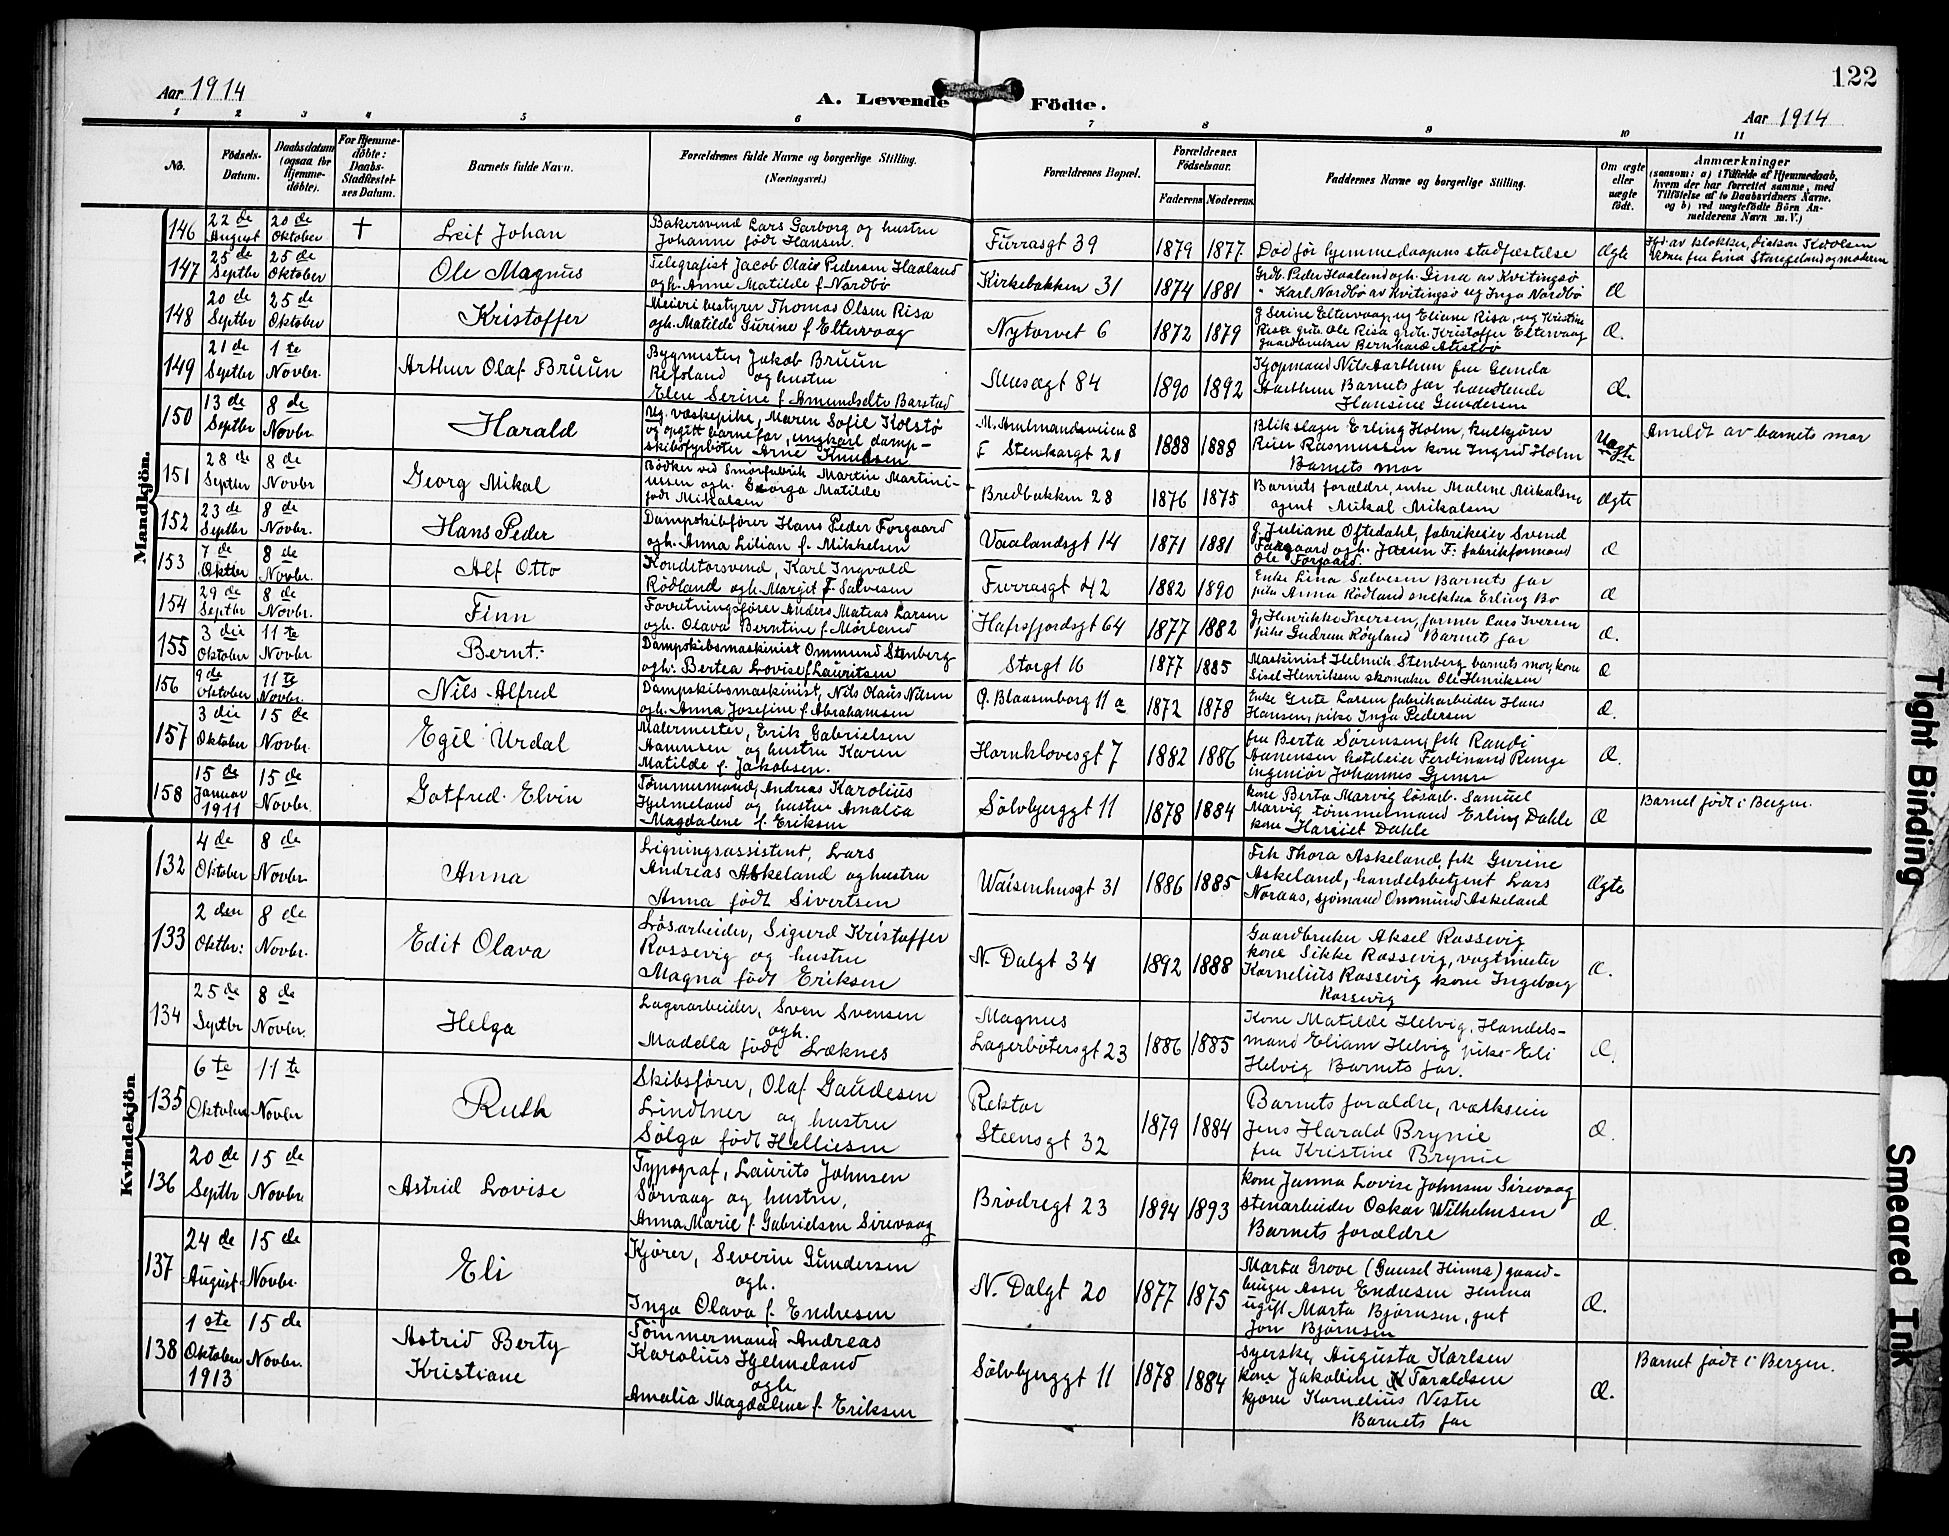 122
Aar 1914
A. Levende Födte.
Aar 1914
1 2 3 4 5 6 7 8 9 10 11
No. Födsels-Datum. Daabsdatum (ogsaa for Hjemme-døbte). For Hjemme-döbte: Daabs-Stadfæstel-ses Datum. Barnets fulde Navn. Forældrenes fulde Navne og borgerlige Stilling. (Næringsvei.) Forældrenes Bopæl. Forældrenes Födselsaar. Faderens Moderens Faddernes Navne og borgerlige Stilling. Om ægte eller uægte födt. Anmærkninger (saasom: a) i Tilfælde af Hjemmedaab, hvem der har forrettet samme, med Tilföielse af to Daabsvidners Navne, og b) ved uægtefödte Börn An-melderens Navn m. V.)
Mandkjön.
146 22 de August 20 de Oktober † Leif Johan
Bakersvend Lars Garborg og hustru
Johanne født Hansen.
Furrasgt 39 1879 1877 Død før hjemmedaapens stadfæstelse Ægte
147 25 de Septbr 25 de Oktober Ole Magnus
Telegrafist Jacob Olais Pedersen Haaland
ogh. Anne Matilde f Nordbø
Kirkebakken 31 1874 1881
Grdb. Peder Haaland ogh. Gina av Kvitingsø
" Karl Nordbø av Kvitingsø ug Inga Nordbø
Æ
148 20 de Septbr 25 de Oktober Kristoffer
Meieribestyrer Thomas Olsen Risa
ogh. Matilde Gurine f Eltervaag
Nytorvet 6 1872 1879
g Serine Eltervaag, ug Eliene Risa, ug Kristine
Risa grb. Ole Risa grb. Kristoffer Eltervaag
gaardbruker Bernhard
Æ.
149 21 de Septbr 1 te Novbr. Arthur Olaf Bruun
Bygmester Jakob Bruun
Refsland og hustru
Elen Serine f Amundsdtr Barstad
Musægt 84 1890 1892
Kjøpmand Nils Aarthun fru Gunda
Aarthun Barnets far handlende
Hansine Gundersen
Æ.
150 13 de Septbr 8 de Novbr. Harald
Ug. væskepike, Maren Sofie Kolstø
og opgitt barnefar, ungkarl damp-
skibsfyrbøter Arne Knudsen
M. Amtmandsveien 8
F Stenkargt 21 1888 1888
Blikslager Erling Holm, kulkjører
Reier Rasmussen kone Ingrid Holm
Barnets mor
Uægte Anmeldt av barnets mor
151 28 de Septbr 8 de Novbr Georg Mikal
Bødker ved Smørfabrik Martin Martini-
ussen ogh. Georga Matilde
født Mikalsen
Bredbakken 28 1876 1875
Barnets forældre, enke Malene Mikalsen
agent Mikal Mikalsen
Ægte
152 23 de Septbr 8 de Novbr. Hans Peder
Dampskibfører Hans Peder Forgaard
ogh. Anna Lilian f. Mikkelsen
Vaalandsgt 14 1871 1881
g. Juliane Oftedahl, fabrikeier Svend
Forgaard ogh. Jasin F. fabrikformand
Ole Forgaard.
Æ
153 7 de Oktbr 8 de Novbr. Alf Otto
Konditorsvend, Karl Ingvald
Rødland ogh. Margit f. Salvesen
Furrasgt 42 1882 1890
Enke Lina Salvesen Barnets far
pike Anna Rødland snekker Erling Bø
Æ
154 29 de Septbr 8 de Novbr. Finn
Foretningsfører Anders Matias Larsen
ogh. Olava Berntine f. Mørland
Hafrsfjordsgt 64 1877 1882
g. Henrikke Iversen, former Lars Iversen
pike Gudrun Røyland Barnets far
Æ.
155 3 die Oktober 11 te Novbr Bernt.
Dampskibsmaskinist Ommund Stenberg
ogh. Bertea Lovise f Lauritsen
Storgt 16 1877 1885
Maskinist Helmik Stenberg, barnets mor, kone
Sisel Henriksen skomaker Ole Henriksen
Æ
156 9 de Oktober 11 te Novbr. Nils Alfred
Dampskibsmaskinist, Nils Olaus Nilsen
ogh. Anna Josefine f Abrahamsen
Ø. Blaasenborg 11 a 1872 1878
Enke Grete Larsen fabrikarbeider Hans
Hansen, pike Inga Pedersen
Æ.
157 3 die Oktober 15 de Novbr. Egil Urdal
Malermester, Erik Gabrielsen
Hannsen og hustru Karen
Matilde f. Jakobsen.
Hornklovesgt 7 1882 1886
fru Berta Sørensen, frk Randi
Hannensen hoteleier Ferdinand Runge
ingeniør Johannes Gjemre
Æ.
158 15 de Januar 1911 15 de Novbr. Gotfred Elvin
Tømmermand, Andreas Karolius
Hjelmeland og hustru Amalia
Magdalene f. Eriksen
Sølvbjerggt 11 1878 1884
kone Berta Marvig løsarb. Samuel
Marvig tømmermand Erling Dahle
kone Harriet Dahle
Æ Barnet født i Bergen.
Kvindekjön
132 4 de Oktober 8 de Novbr. Anna
Ligningsassistent, Lars
Andreas Askeland og hustru
Anna født Sivertsen
Waisenhusgt 31 1886 1885
Frk Thora Askeland, frk Gurine
Askeland, handelsbetjent Lars
Noraas, sjømand Ommund Askeland
Ægte
133 2 den Oktbr: 8 de Novbr. Edit Olava
Løsarbeider, Sigurd Kristoffer
Rossevig og hustru
Magna født Eriksen
N. Dalgt 34 1892 1888
Gaardbruker Aksel Rossevig
kone Sikke Rossevig, vagtmester
Kornelius Rossevig kone Ingeborg
Rossevig
Æ.
134 25 de Septbr 8 de Novbr. Helga
Lagerarbeider, Sven Svensen
ogh.
Madella født Læknes
Magnus
Lagerbøtersgt 23 1886 1885
Kone Matilde Helvig, Handels-
mand Eliam Helvig pike Eli
Helvig Barnets far.
Æ.
135 6 te Oktober 11 te Novbr Ruth
Skibsfører, Olaf Gaudesen
Lindtner og hustru
Sølga født Helliesen
Rektor
Steensgt 32 1879 1884
Barnets forældre, verkseier
Jens Harald Brynie
fru Kristine Brynie
Æ.
136 20 de Septbr 15 de Novbr. Astrid Lovise
Typograf, Laurits Johnsen
Sørvaag og hustru,
Anna Marie f. Gabrielsen Sirevaag
Brødregt 23 1894 1893
kone Janna Lovise Johnsen Sirevaag
stenarbeider Oskar Wilhelmsen
Barnets forældre
Æ.
137 24 de August 15 de Novbr. Eli
Kjører, Severin Gundersen
ogh.
Inga Olava f. Endresen
N. Dalgt 20 1877 1875
Marta Grove (Gausel Hinna) gaard-
bruger Asser Endresen Hinna
ugift Marta Bjørnsen, gut
Jon Bjørnsen
Æ.
138 1 ste Oktober 1913 15 de Novbr. Astrid Berty
Kristiane
Tømmermand Andreas
Karolius Hjelmeland
ogh
Amalia Magdalene f. Eriksen
Sølvbjerggt 11 1878 1884
Syerske, Augusta Karlsen
kone Jakobine Taraldsen
kjører Kornelius Vestre
Barnets far
Æ. Barnet født i Bergen.
Tight Binding
Smeared Ink